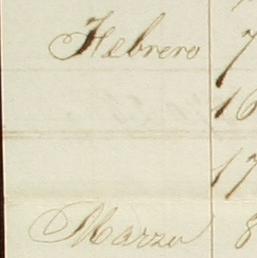 Febrero 7
16
17
Marzo 8